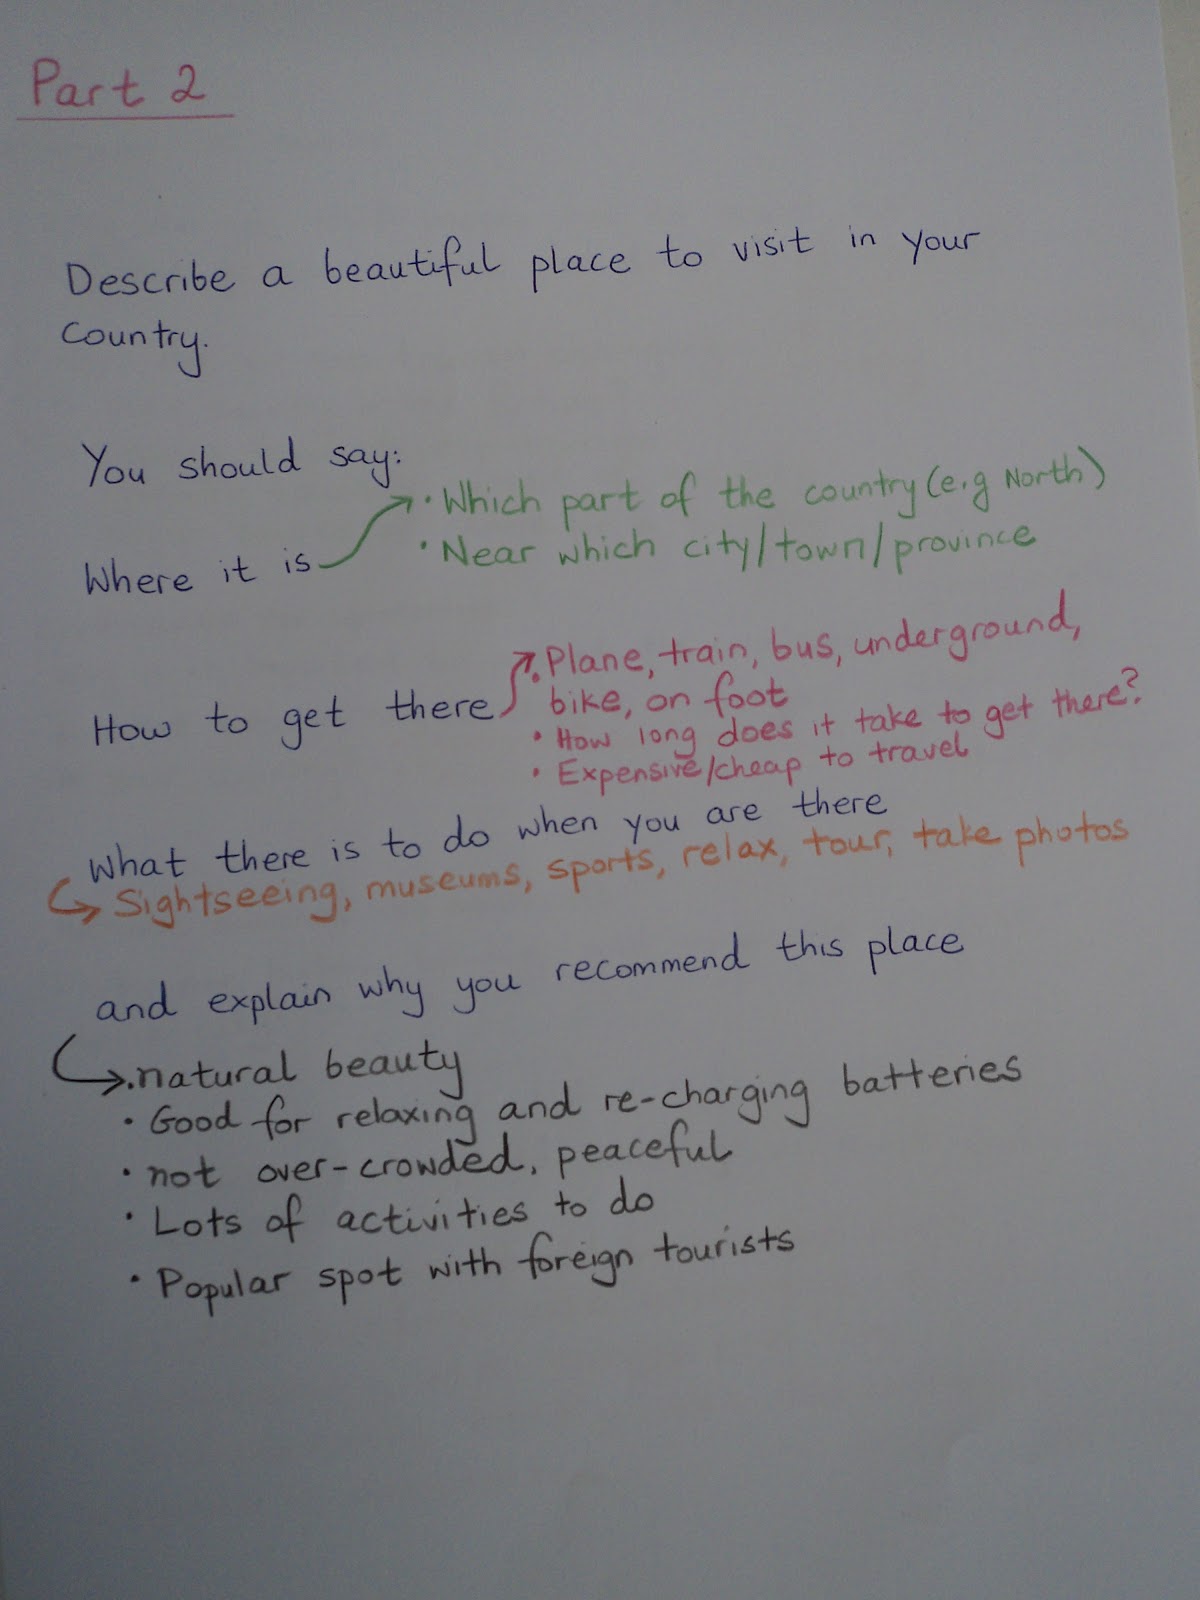 Part 2
Describe a beautiful place to visit in your
country.
You should say:
• Which part of the country (e.g North)
Where it is
• Near which city/town/province
• Plane, train, bus, underground,
How to get there
bike, on foot
• How long does it take to get there?
• Expensive/cheap to travel
What there is to do when you are there
Sightseeing, museums, sports, relax, tour, take photos
and explain why you recommend this place
• natural beauty
• Good for relaxing and re-charging batteries
• not over-crowded, peaceful
• Lots of activities to do
• Popular spot with foreign tourists